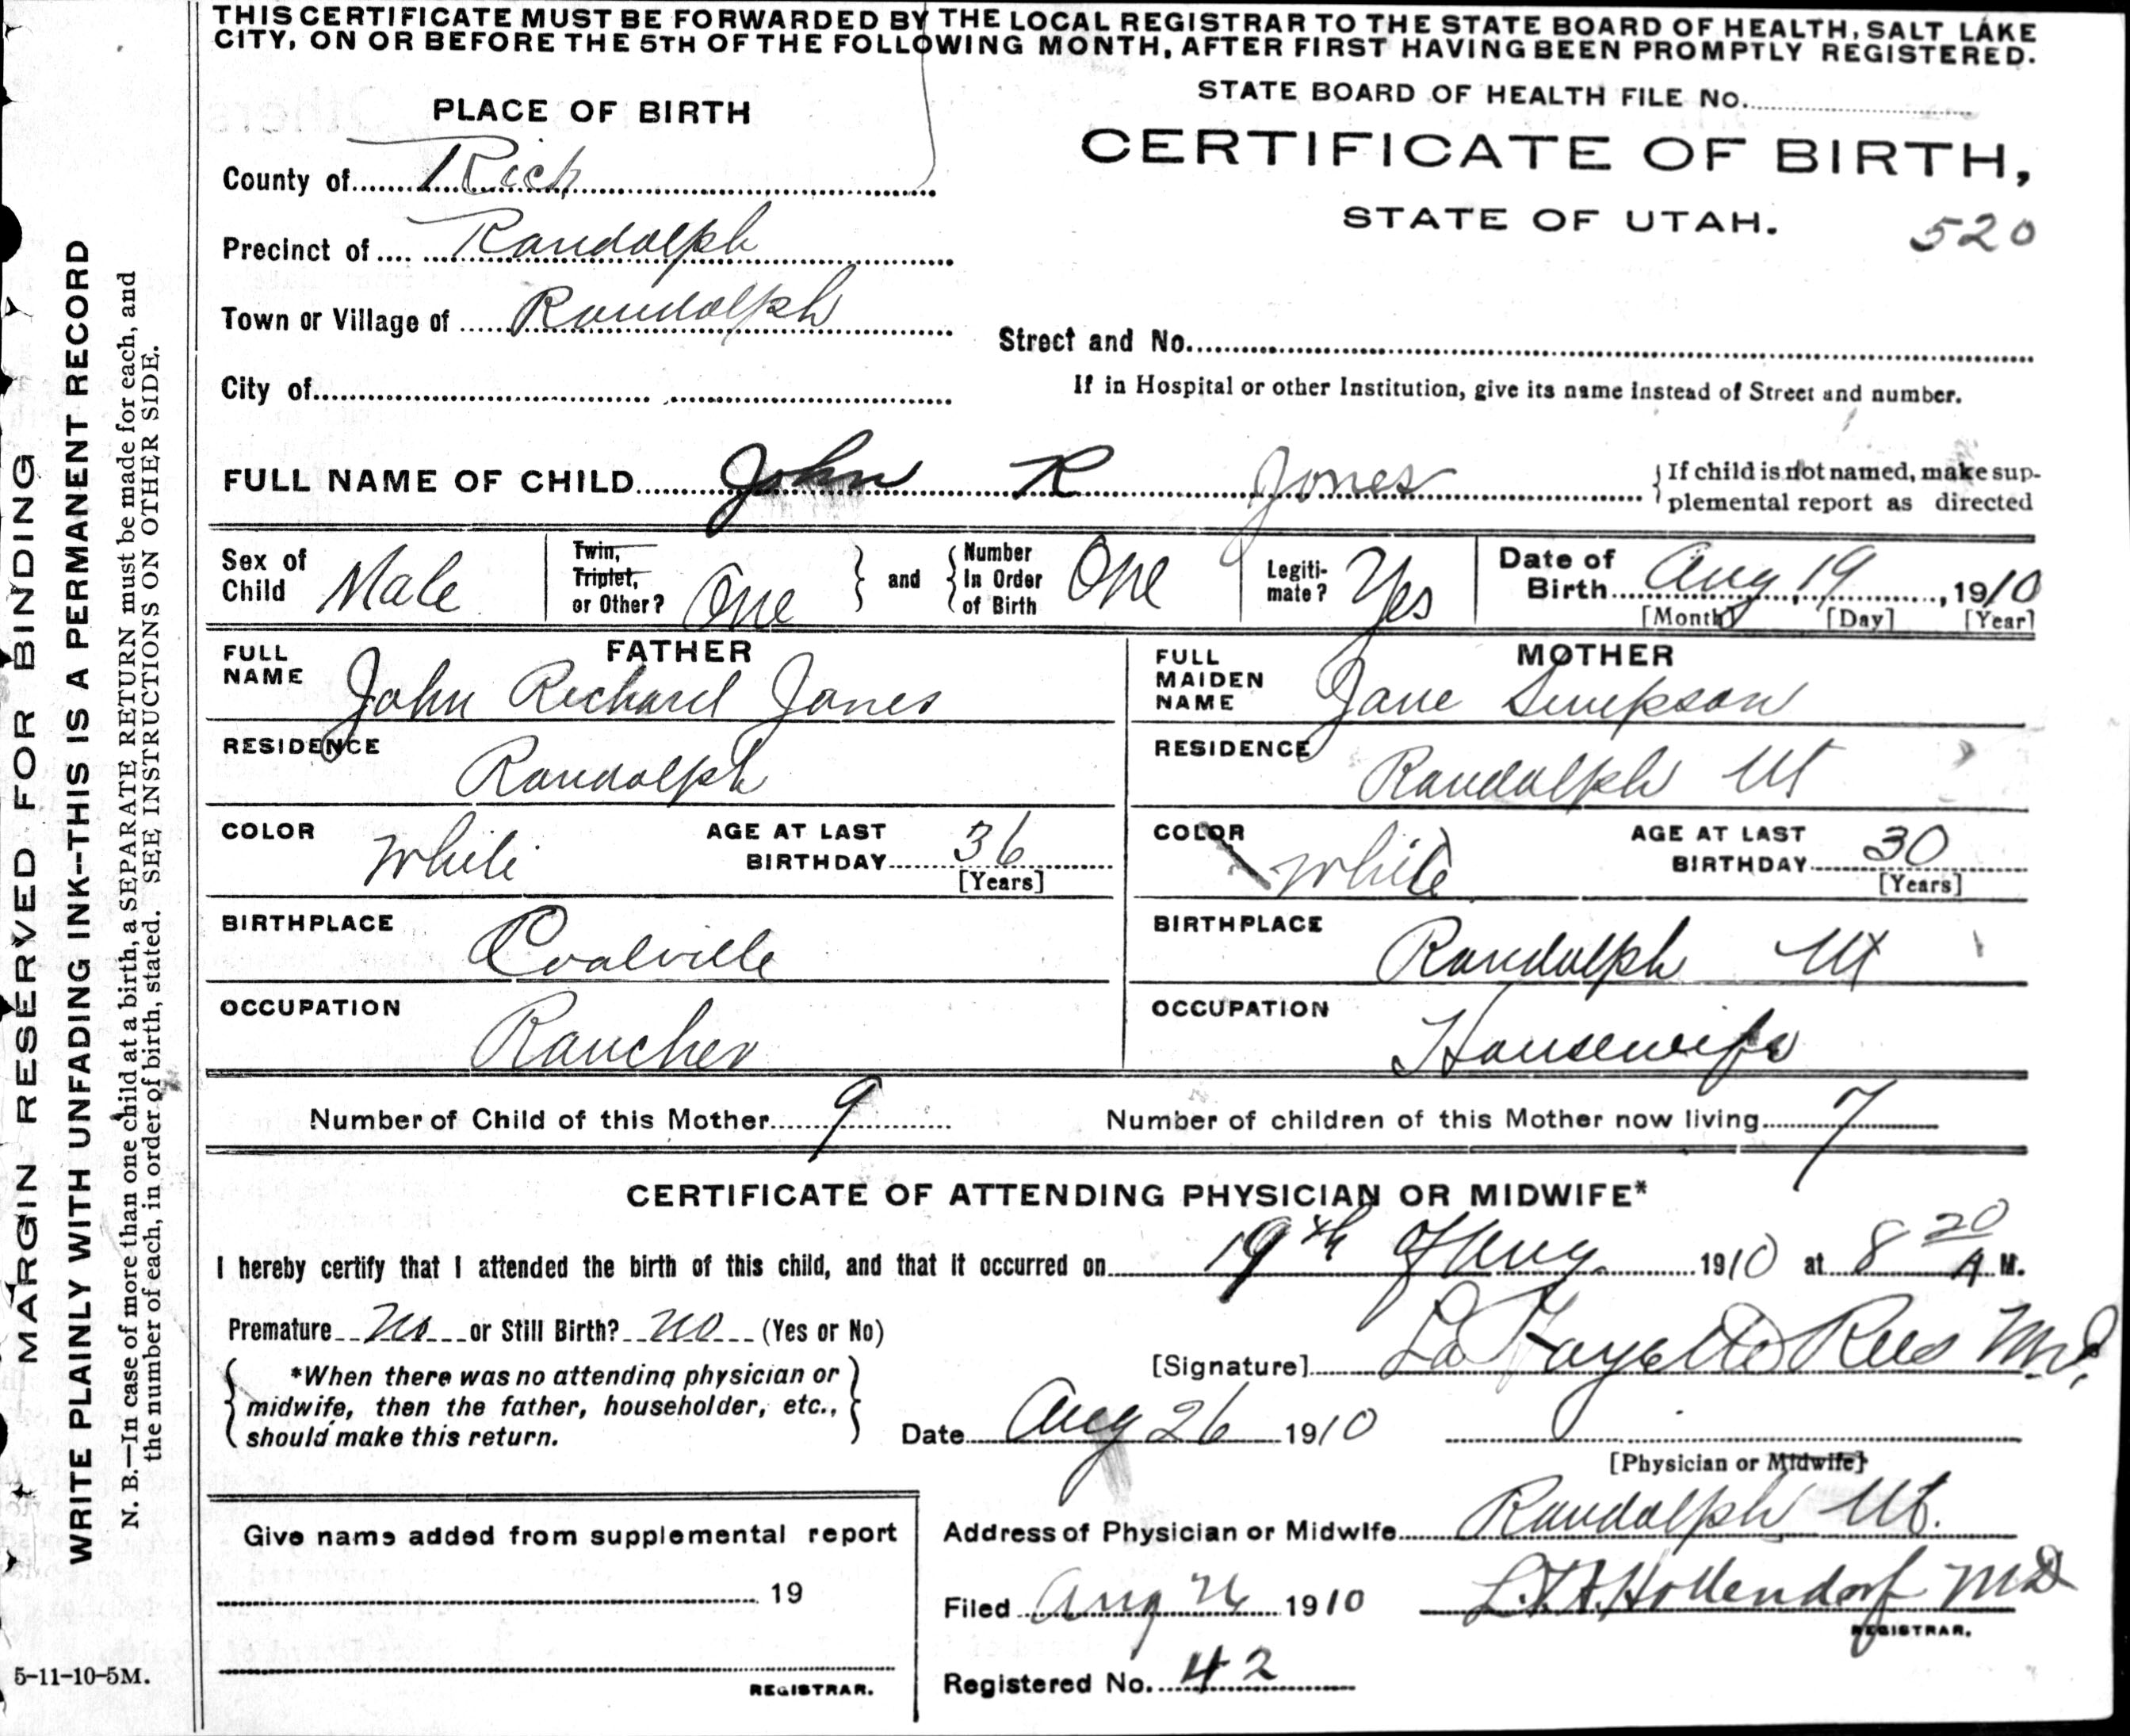 THIS CERTIFICATE MUST BE FORWARDED BY THE LOCAL REGISTRAR TO THE STATE BOARD OF HEALTH, SALT LAKE
CITY, ON OR BEFORE THE 5TH OF THE FOLLOWING MONTH, AFTER FIRST HAVING BEEN PROMPTLY REGISTERED.
STATE BOARD OF HEALTH FILE No.
PLACE OF BIRTH
CERTIFICATE OF BIRTH,
County of Rich
STATE OF UTAH. 520
Precinct of Randolph
Town or Village of Randolph
Street and No.
City of
If in Hospital or other Institution, give its name instead of Street and number.
FULL NAME OF CHILD John R Jones { If child is not named, make sup-
plemental report as directed
Sex of Child Male
Twin, Triplet, or Other? One } and { Number In Order of Birth One
Legiti-mate? Yes
Date of Birth Aug 19, 1910
[Month] [Day] [Year]
FATHER
FULL NAME John Richard Jones
MOTHER
FULL MAIDEN NAME Jane Simpson
RESIDENCE Randolph
RESIDENCE Randolph Ut
COLOR White AGE AT LAST BIRTHDAY 36 [Years]
COLOR White AGE AT LAST BIRTHDAY 30 [Years]
BIRTHPLACE Coalville
BIRTHPLACE Randolph Ut
OCCUPATION Rancher
OCCUPATION Housewife
Number of Child of this Mother 9 Number of children of this Mother now living 7
CERTIFICATE OF ATTENDING PHYSICIAN OR MIDWIFE*
I hereby certify that I attended the birth of this child, and that it occurred on 19th of Aug. 1910 at 8 20 A M.
Premature No or Still Birth? No (Yes or No)
[Signature] La Fayette Rees M.D.
{ *When there was no attending physician or
midwife, then the father, householder, etc.,
should make this return. }
Date Aug 26 1910
[Physician or Midwife]
Address of Physician or Midwife Randolph Ut.
Give name added from supplemental report
19
REGISTRAR.
Filed Aug 26 1910 Hollendorf MD
REGISTRAR.
Registered No. 42
5-11-10-5M.
MARGIN RESERVED FOR BINDING
WRITE PLAINLY WITH UNFADING INK--THIS IS A PERMANENT RECORD
N. B.—In case of more than one child at a birth, a SEPARATE RETURN must be made for each, and
the number of each, in order of birth, stated. SEE INSTRUCTIONS ON OTHER SIDE.